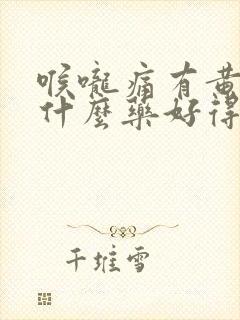 喉嚨痛有黃
什麼藥好得
千堆雪